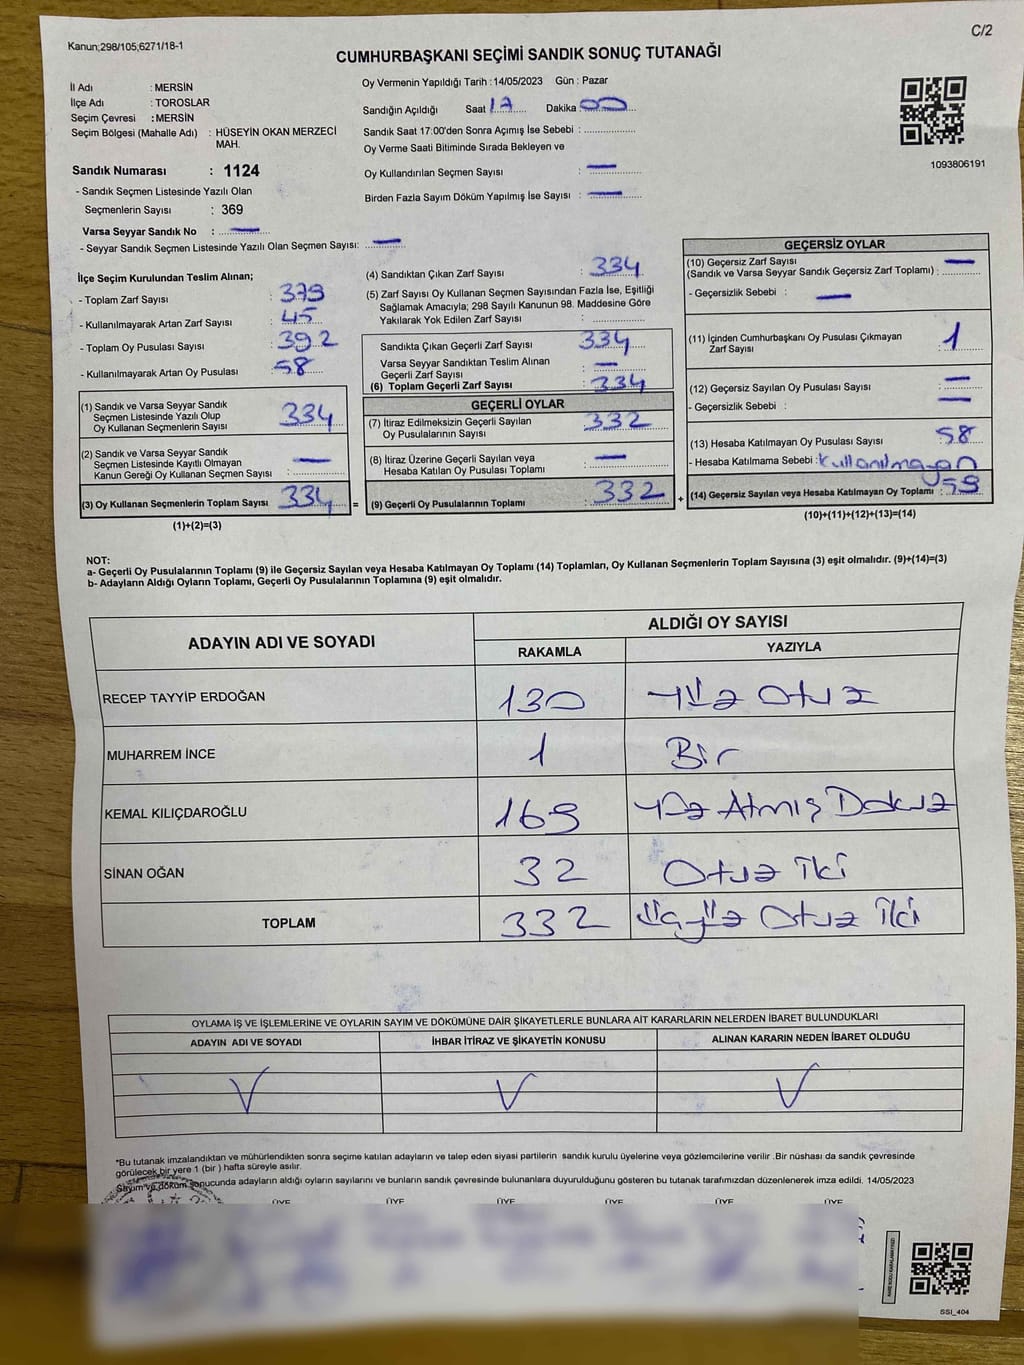 Kanun;298/105,6271/18-1
C/2
CUMHURBAŞKANI SEÇİMİ SANDIK SONUÇ TUTANAĞI
İl Adı : MERSİN
İlçe Adı : TOROSLAR
Seçim Çevresi : MERSİN
Seçim Bölgesi (Mahalle Adı) : HÜSEYİN OKAN MERZECİ
MAH.
Sandık Numarası : 1124
- Sandık Seçmen Listesinde Yazılı Olan
Seçmenlerin Sayısı : 369
Varsa Seyyar Sandık No : —
- Seyyar Sandık Seçmen Listesinde Yazılı Olan Seçmen Sayısı: —
Oy Vermenin Yapıldığı Tarih : 14/05/2023 Gün : Pazar
Sandığın Açıldığı Saat 17 Dakika 00
Sandık Saat 17:00'den Sonra Açımış İse Sebebi :
Oy Verme Saati Bitiminde Sırada Bekleyen ve
Oy Kullandırılan Seçmen Sayısı : —
Birden Fazla Sayım Döküm Yapılmış İse Sayısı : —
1093806191
İlçe Seçim Kurulundan Teslim Alınan;
- Toplam Zarf Sayısı : 379
- Kullanılmayarak Artan Zarf Sayısı : 45
- Toplam Oy Pusulası Sayısı : 392
- Kullanılmayarak Artan Oy Pusulası : 58
(1) Sandık ve Varsa Seyyar Sandık
Seçmen Listesinde Yazılı Olup
Oy Kullanan Seçmenlerin Sayısı : 334
(2) Sandık ve Varsa Seyyar Sandık
Seçmen Listesinde Kayıtlı Olmayan
Kanun Gereği Oy Kullanan Seçmen Sayısı : —
(3) Oy Kullanan Seçmenlerin Toplam Sayısı : 334 =
(1)+(2)=(3)
(4) Sandıktan Çıkan Zarf Sayısı : 334
(5) Zarf Sayısı Oy Kullanan Seçmen Sayısından Fazla İse, Eşitliği
Sağlamak Amacıyla; 298 Sayılı Kanunun 98. Maddesine Göre
Yakılarak Yok Edilen Zarf Sayısı :
Sandıkta Çıkan Geçerli Zarf Sayısı : 334
Varsa Seyyar Sandıktan Teslim Alınan
Geçerli Zarf Sayısı : —
(6) Toplam Geçerli Zarf Sayısı : 334
GEÇERLİ OYLAR
(7) İtiraz Edilmeksizin Geçerli Sayılan
Oy Pusulalarının Sayısı : 332
(8) İtiraz Üzerine Geçerli Sayılan veya
Hesaba Katılan Oy Pusulası Toplamı : —
(9) Geçerli Oy Pusulalarının Toplamı : 332 +
GEÇERSİZ OYLAR
(10) Geçersiz Zarf Sayısı
(Sandık ve Varsa Seyyar Sandık Geçersiz Zarf Toplamı) : —
- Geçersizlik Sebebi : —
(11) İçinden Cumhurbaşkanı Oy Pusulası Çıkmayan
Zarf Sayısı : 1
(12) Geçersiz Sayılan Oy Pusulası Sayısı : —
- Geçersizlik Sebebi : —
(13) Hesaba Katılmayan Oy Pusulası Sayısı : 58
- Hesaba Katılmama Sebebi : Kullanılmayan
(14) Geçersiz Sayılan veya Hesaba Katılmayan Oy Toplamı : 59
(10)+(11)+(12)+(13)=(14)
NOT:
a- Geçerli Oy Pusulalarının Toplamı (9) ile Geçersiz Sayılan veya Hesaba Katılmayan Oy Toplamı (14) Toplamları, Oy Kullanan Seçmenlerin Toplam Sayısına (3) eşit olmalıdır. (9)+(14)=(3)
b- Adayların Aldığı Oyların Toplamı, Geçerli Oy Pusulalarının Toplamına (9) eşit olmalıdır.
ADAYIN ADI VE SOYADI
ALDIĞI OY SAYISI
RAKAMLA YAZIYLA
RECEP TAYYİP ERDOĞAN 130 Yüz Otuz
MUHARREM İNCE 1 Bir
KEMAL KILIÇDAROĞLU 169 Yüz Atmış Dokuz
SİNAN OĞAN 32 Otuz iki
TOPLAM 332 Üçyüz Otuz iki
OYLAMA İŞ VE İŞLEMLERİNE VE OYLARIN SAYIM VE DÖKÜMÜNE DAİR ŞİKAYETLERLE BUNLARA AİT KARARLARIN NELERDEN İBARET BULUNDUKLARI
ADAYIN ADI VE SOYADI İHBAR İTİRAZ VE ŞİKAYETİN KONUSU ALINAN KARARIN NEDEN İBARET OLDUĞU
*Bu tutanak imzalandıktan ve mühürlendikten sonra seçime katılan adayların ve talep eden siyasi partilerin sandık kurulu üyelerine veya gözlemcilerine verilir .Bir nüshası da sandık çevresinde
görülecek bir yere 1 (bir ) hafta süreyle asılır.
Sayım ve döküm sonucunda adayların aldığı oyların sayılarını ve bunların sandık çevresinde bulunanlara duyurulduğunu gösteren bu tutanak tarafımızdan düzenlenerek imza edildi. 14/05/2023
ÜYE ÜYE ÜYE ÜYE ÜYE ÜYE
SSİ_404